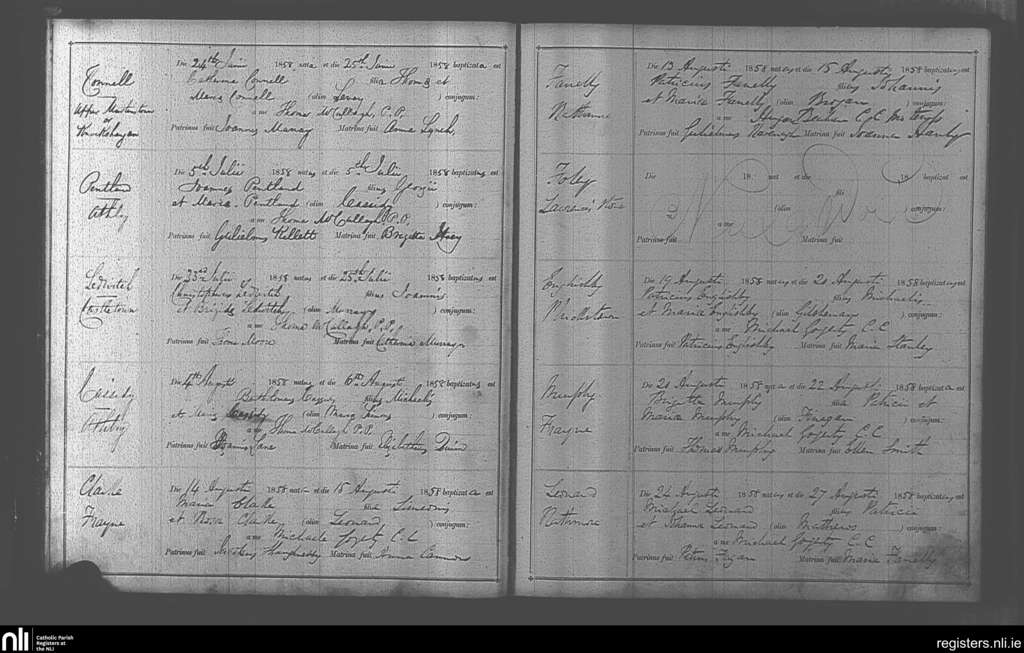 Connell
Upper Martinstown
or
Die 24th Junii 1858 nata et die 25th Junii 1858 baptizata est
Catherina Connell filia Thomæ et
Maria Connell (olim Leney) conjugum:
a me Thoma McCullagh, C.P.
Patrinus fuit Joannes Murray Matrina fuit Anna Lynch,
Pentland
Athboy
Die 5th Julii 1858 natus et die 5th Julii 1858 baptizatus est
Joannes Pentland filius Georgii
et Maria Pentland (olim Cassidy) conjugum:
a me Thoma McCullagh P.P.
Patrinus fuit Gulielmus Kellett Matrina fuit Brigitta
Ledwitch
Die 23rd Julii 1858 natus et die 25th Julii 1858 baptizatus est
Christopherus Ledwitch filius Joannis
et Brigida Ledwitch (olim Murray) conjugum:
a me Thoma McCullagh, P.P.
Patrinus fuit Thoma Moore Matrina fuit Catherina Murray
Cassidy
Athboy
Die 4th Augusti 1858 natus et die 15th Augusti 1858 baptizatus est
Bartholomeus filius Michaelis
et Maria Cassidy (olim Maria) conjugum:
a me Thoma McCullagh P.P.
Patrinus fuit Lane Matrina fuit Elizabetha Quinn
Clarke
Frayne
Die 14 Augusti 1858 nata et die 15 Augusti 1858 baptizata est
Maria Clarke filia Laurentii
et Rosa Clarke (olim Leonard) conjugum:
a me Michaele Gogerty C.C.
Patrinus fuit Humphrey Matrina fuit Anna
Fanelly
Rathmore
Die 13 Augusti 1858 natus et die 15 Augusti 1858 baptizatus est
Patricius Fanelly filius Johannis
et Maria Fanelly (olim Brogan) conjugum:
a me Hugo C.C.
Patrinus fuit Gulielmus Matrina fuit Joanna Hanby
Foley
Die 18 nat et die 18 baptizat est
fili
(olim ) conjugum:
a me
Patrinus fuit Matrina fuit
Englishby
Die 19 Augusti 1858 natus et die 20 Augusti 1858 baptizatus est
Patricius Englishby filius Michaelis
et Maria Englishby (olim Gilshenan) conjugum:
a me Michael Gogerty C.C.
Patrinus fuit Patricius Englishby Matrina fuit Maria Stanley
Murphy
Frayne
Die 20 Augusti 1858 nata et die 22 Augusti 1858 baptizata est
Brigitta Murphy filia Patricii et
Maria Murphy (olim Finegan) conjugum:
a me Michael Gogerty C.C
Patrinus fuit Thomas Murphy Matrina fuit Ellen Smith
Leonard
Rathmore
Die 24 Augusti 1858 natus et die 27 Augusti 1858 baptizatus est
Michael Leonard filius Patricii
et Johanna Leonard (olim Mathews) conjugum:
a me Michael Gogerty C.C.
Patrinus fuit Petrus Fagan Matrina fuit Maria Fanelly
nli
Catholic Parish
Registers at
the NLI
registers.nli.ie